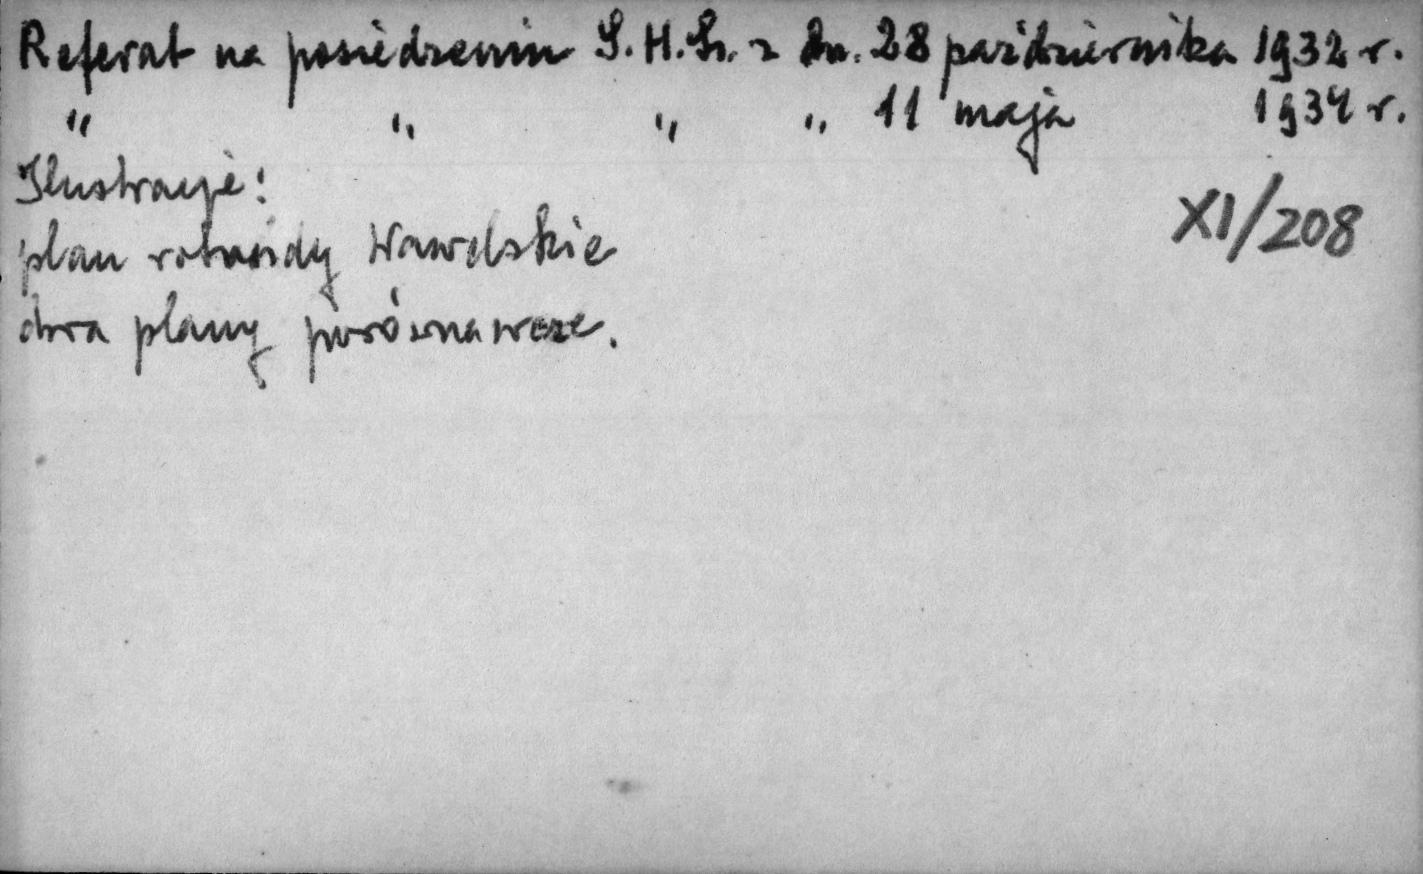 Referat na posiedzeniu S.H.Sz. z dn. 28 października 1932 r.
" " " " 11 maja 1934 r.
Ilustracje:
XI/208
plan rotundy Wawelskie
dwa plany porównawcze.